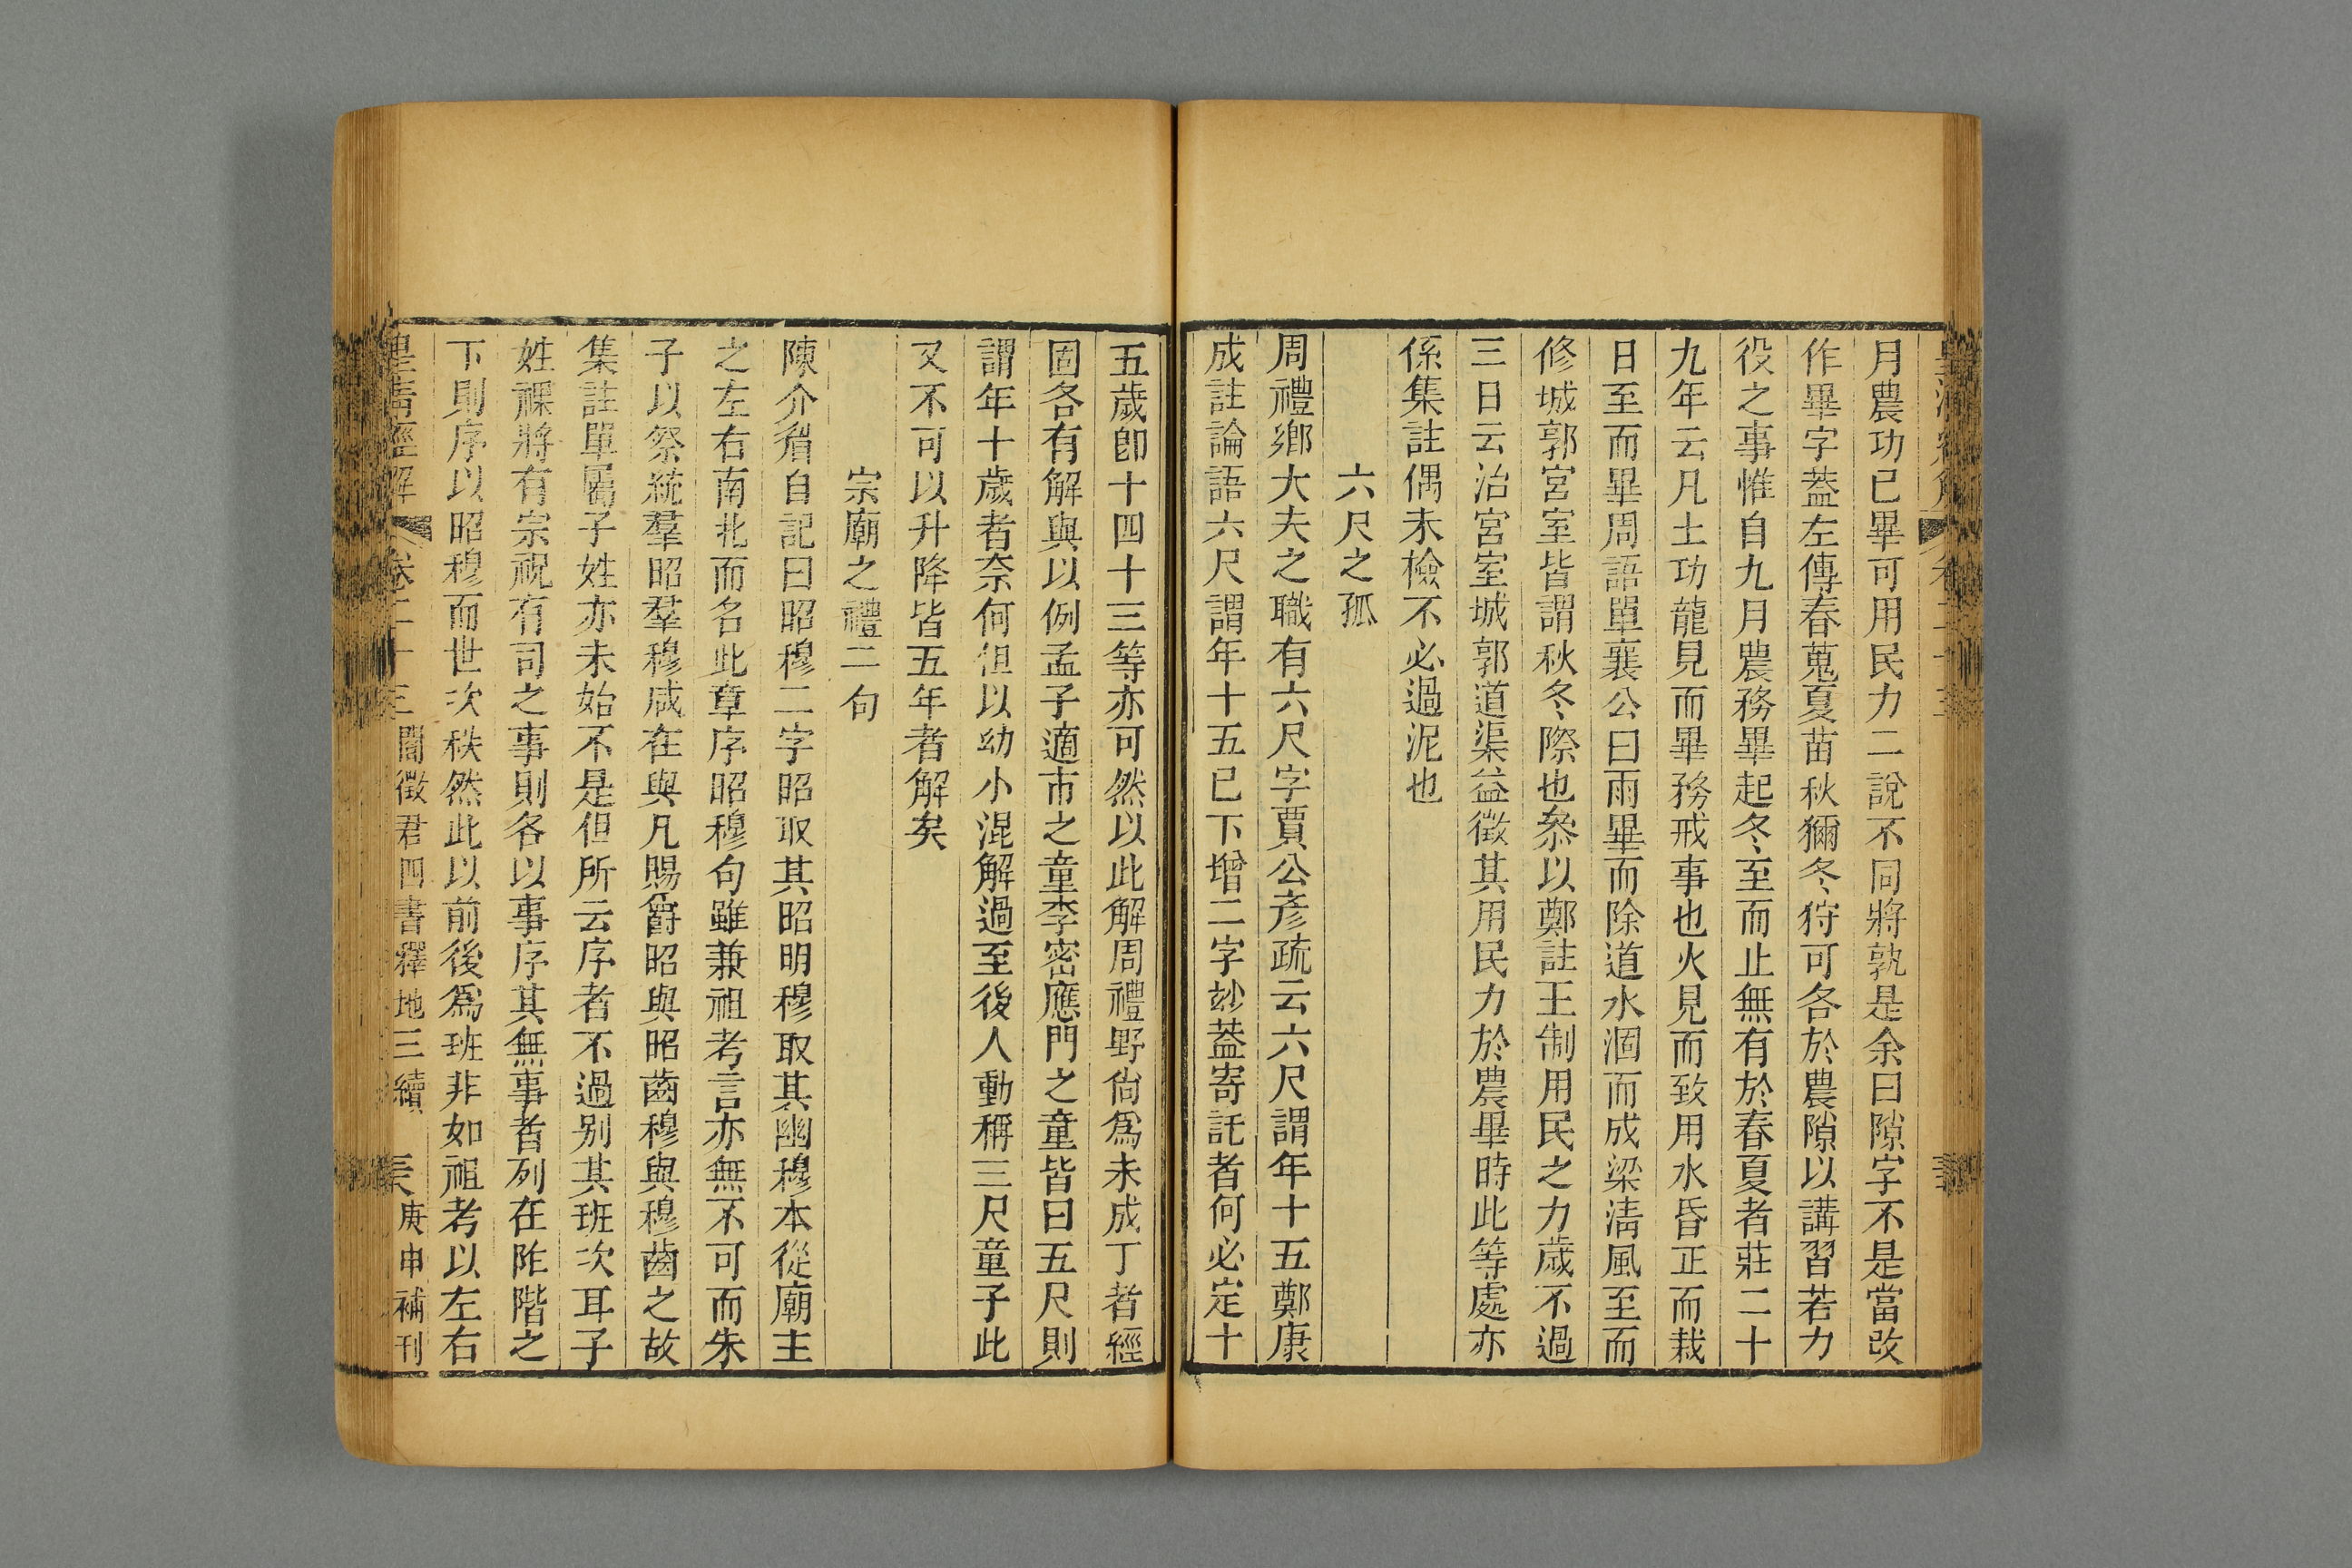 月農功已畢可用民力二說不同將孰是余曰隙字不是當改
作畢字葢左傳春蒐夏苗秋獮冬狩可各於農隙以講習若力
役之事惟自九月農務畢起冬至而止無有於春夏者莊二十
九年云凡土功龍見而畢務戒事也火見而致用水昏正而栽
日至而畢周語單襄公曰雨畢而除道水涸而成梁淸風至而
修城郭宮室皆謂秋冬際也叅以鄭註王制用民之力歲不過
三日云治宮室城郭道渠益徵其用民力於農畢時此等處亦
係集註偶未檢不必過泥也
六尺之孤
周禮鄉大夫之職有六尺字賈公彥疏云六尺謂年十五鄭康
成註論語六尺謂年十五已下增二字玅葢寄託者何必定十
五歲卽十四十三等亦可然以此解周禮野尙爲未成丁者經
固各有解與以例孟子適市之童李密應門之童皆曰五尺則
謂年十歲者奈何但以幼小混解過至後人動稱三尺童子此
又不可以升降皆五年者解矣
宗廟之禮二句
陳介眉自記曰昭穆二字昭取其昭明穆取其幽穆本從廟主
之左右南北而名此章序昭穆句雖兼祖考言亦無不可而朱
子以祭統羣昭羣穆咸在與凡賜爵昭與昭齒穆與穆齒之故
集註單屬子姓亦未始不是但所云序者不過別其班次耳子
姓祼將有宗祝有司之事則各以事序其無事者列在阼階之
下則序以昭穆而世次秩然此以前後爲班非如祖考以左右
皇淸經解 卷二十三 閻徵君四書釋地三續 庚申補刊